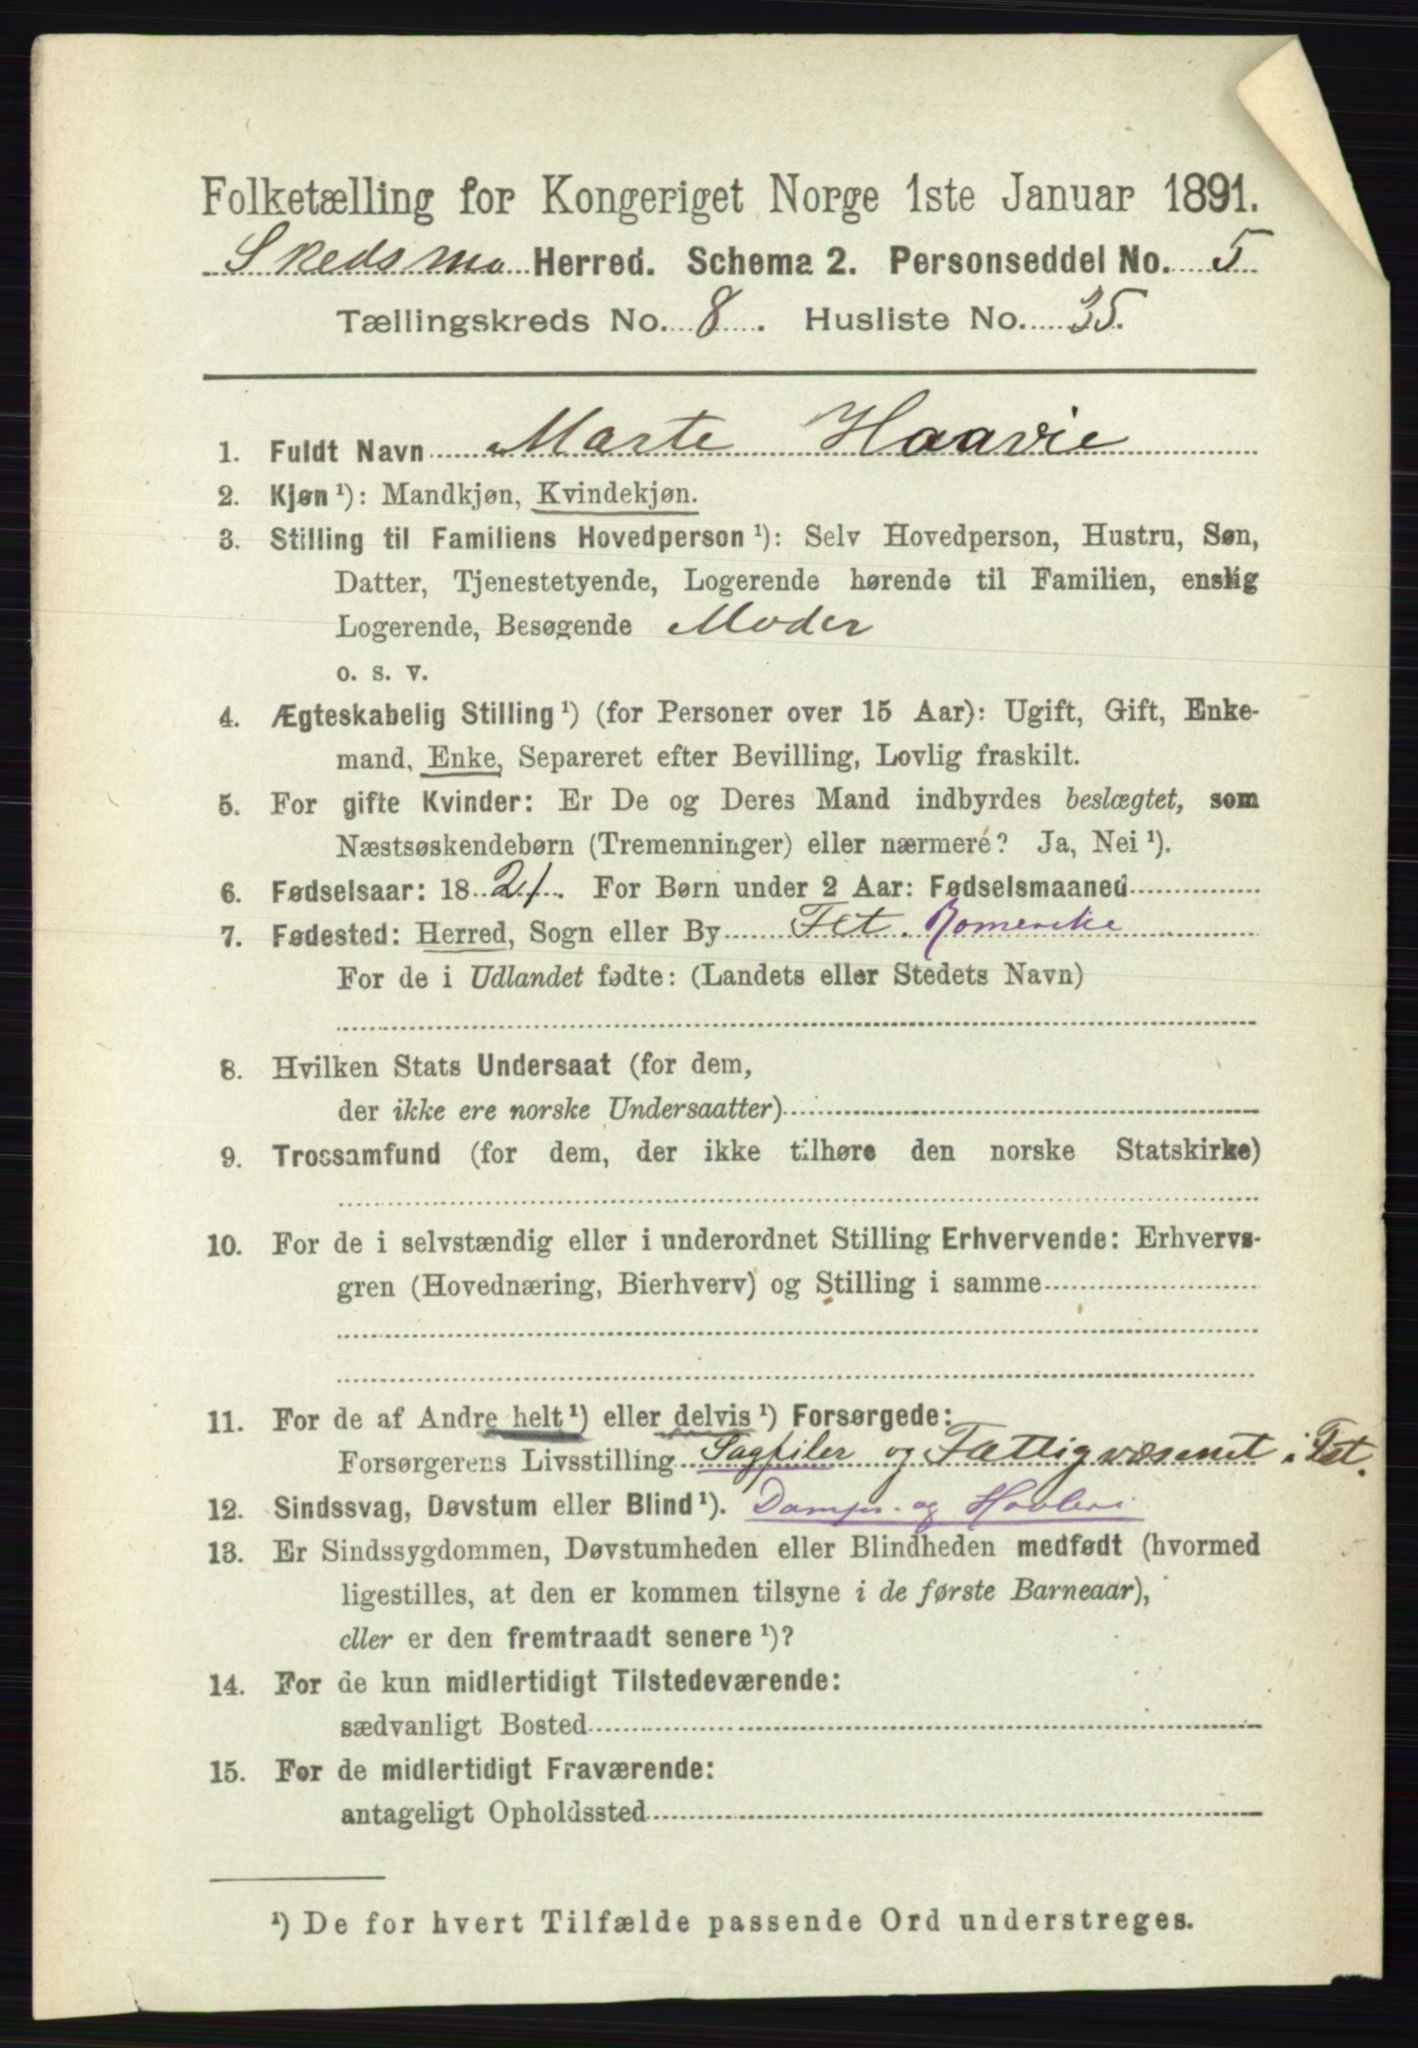 Folketælling for Kongeriget Norge 1ste Januar 1891.
Skedsmo Herred. Schema 2. Personseddel No. 5
Tællingskreds No. 8. Husliste No. 35.
1. Fuldt Navn Marte Haavie
2. Kjøn¹): Mandkjøn, Kvindekjøn.
3. Stilling til Familiens Hovedperson¹): Selv Hovedperson, Hustru, Søn,
Datter, Tjenestetyende, Logerende hørende til Familien, enslig
Logerende, Besøgende Moder
o. s. v.
4. Ægteskabelig Stilling¹) (for Personer over 15 Aar): Ugift, Gift, Enke-
mand, Enke, Separeret efter Bevilling, Lovlig fraskilt.
5. For gifte Kvinder: Er De og Deres Mand indbyrdes beslægtet, som
Næstsøskendebørn (Tremenninger) eller nærmere? Ja, Nei¹).
6. Fødselsaar: 1821. For Børn under 2 Aar: Fødselsmaaned
7. Fødested: Herred, Sogn eller By Fet. Romerike
For de i Udlandet fødte: (Landets eller Stedets Navn)
8. Hvilken Stats Undersaat (for dem,
der ikke ere norske Undersaatter)
9. Trossamfund (for dem, der ikke tilhøre den norske Statskirke)
10. For de i selvstændig eller i underordnet Stilling Erhvervende: Erhvervs-
gren (Hovednæring, Bierhverv) og Stilling i samme
11. For de af Andre helt¹) eller delvis¹) Forsørgede:
Forsørgerens Livsstilling Sagfiler og Fattigvæsenet i Fet.
12. Sindssvag, Døvstum eller Blind¹). Damps. og Høvleri
13. Er Sindssygdommen, Døvstumheden eller Blindheden medfødt (hvormed
ligestilles, at den er kommen tilsyne i de første Barneaar),
eller er den fremtraadt senere¹)?
14. For de kun midlertidigt Tilstedeværende:
sædvanligt Bosted
15. For de midlertidigt Fraværende:
antageligt Opholdssted
¹) De for hvert Tilfælde passende Ord understreges.